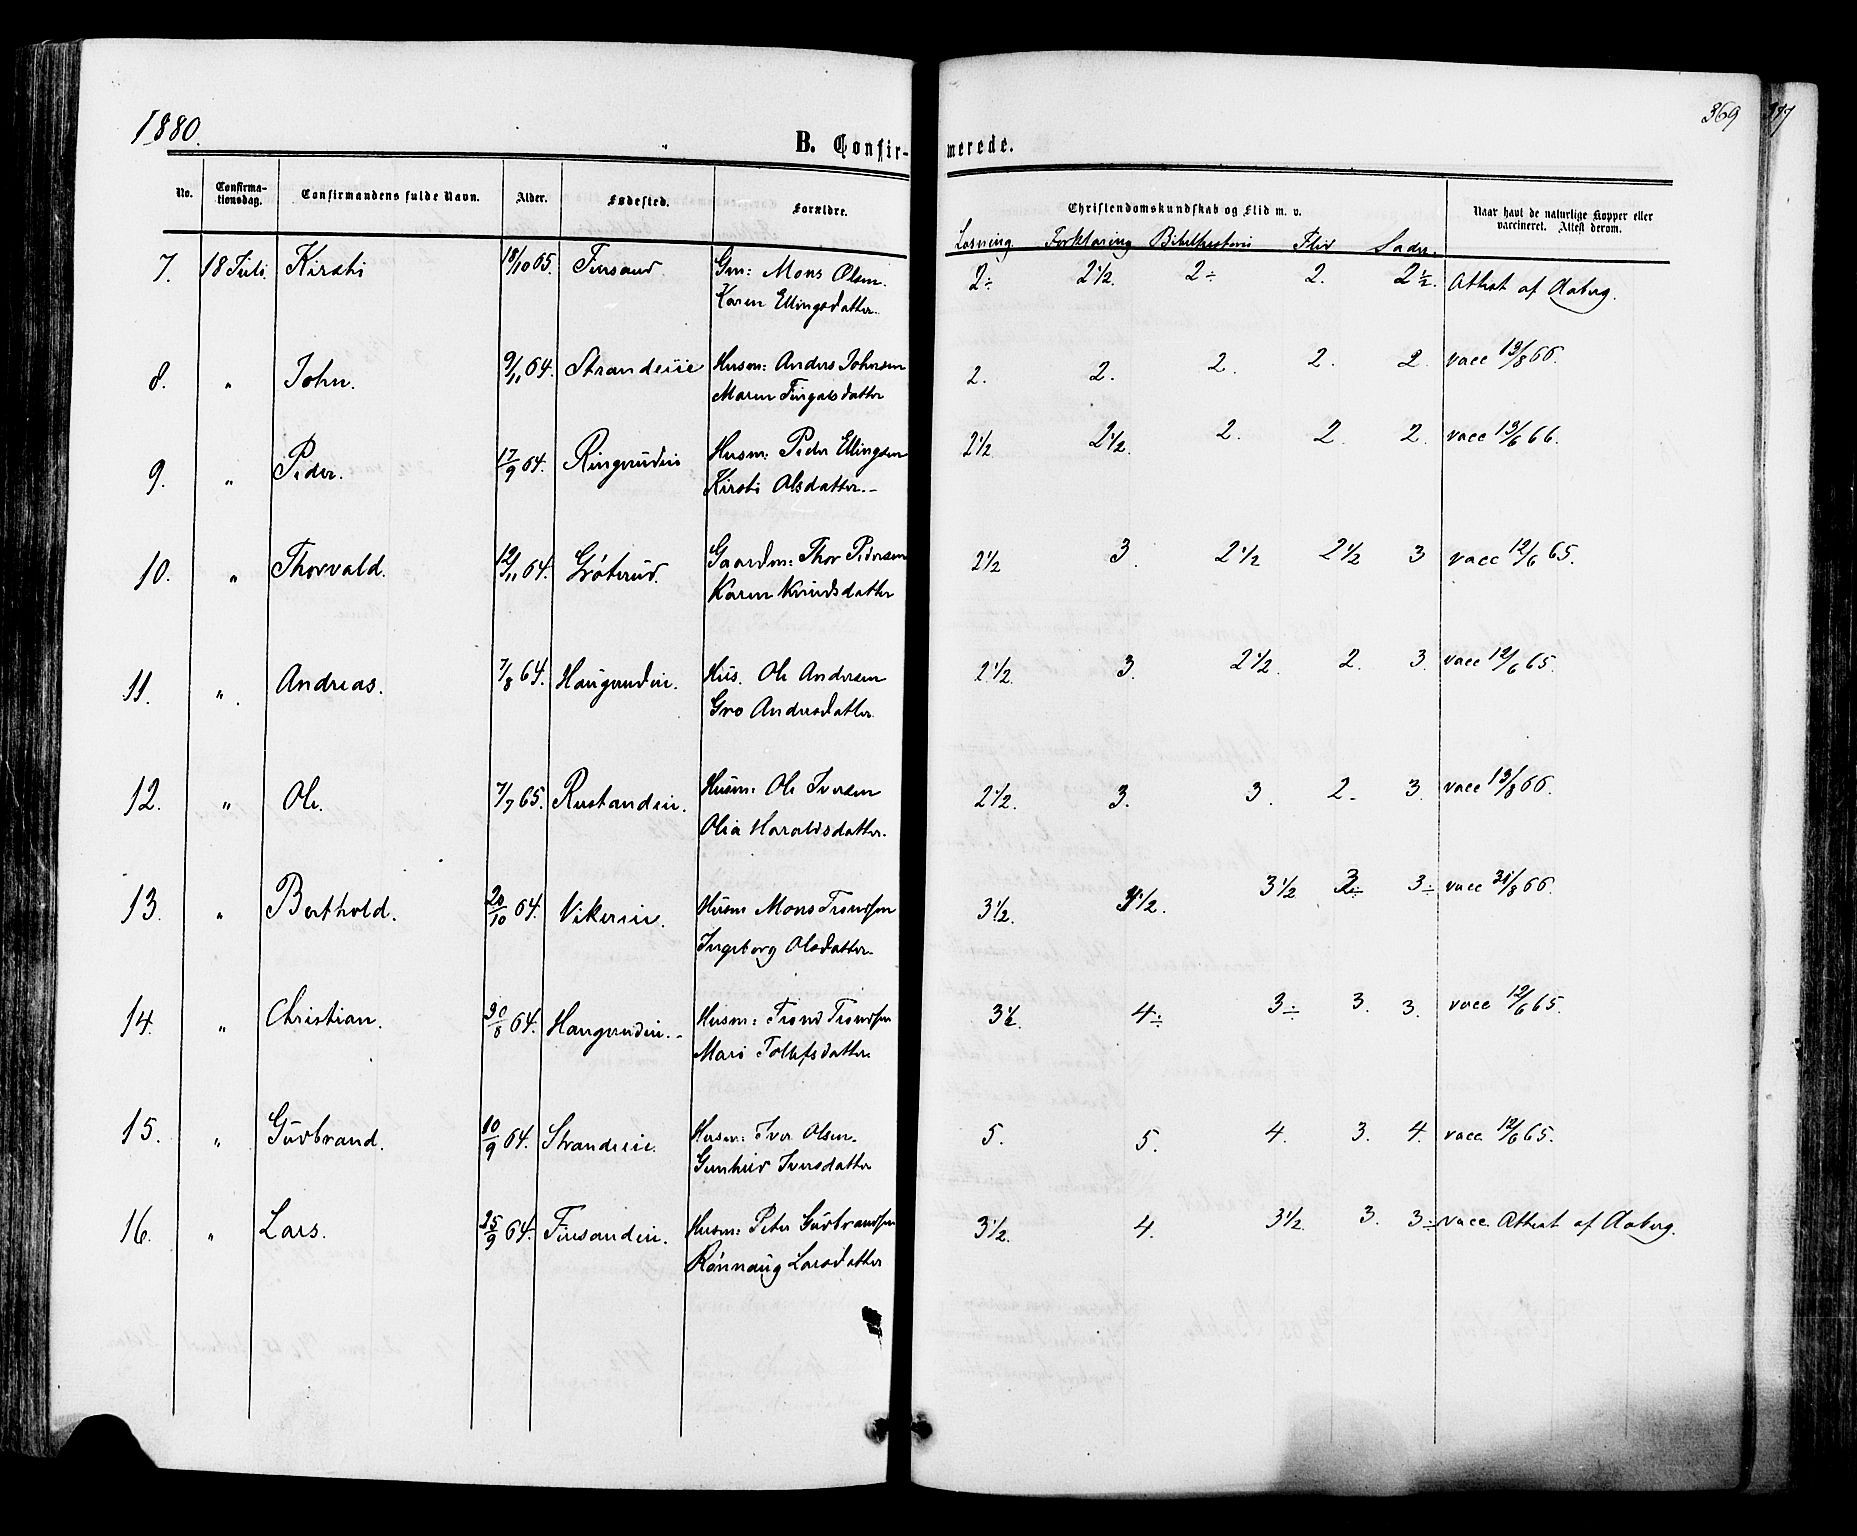 1880.
369
B. Confir-merede.
No. Confirma-tionsdag. Confirmandens fulde Navn. Alder. Fødested. Forældre. Christendomskundskab og Flid m. v. Naar havt de naturlige Kopper eller vaccineret. Attest derom.
Læsning Forklaring Bibelhistorie Flid Sæder.
7. 18 Juli. Kirsti 18/10 65. Finsand. Gm: Mons Olsen. 2÷ 2 1/2. 2÷ 2. 2 1/2. Attest af Aaberg.
Karen Ellingsdatter.
8. " John. 9/11 64. Strandeiie Husm: Anders Johnsen 2. 2. 2. 2. 2. vacc 13/8 66.
Maren Fingalsdatter
9. " Peder. 17/9 64. Ringerudeie Husm: Peder Ellingsen 2 1/2 2 1/2. 2. 2. 2. vacc 13/6 66.
Kirsti Olsdatter.-
10. " Thorvald. 12/11 64. Grøterud. Gaardm: Thor Pedersen 2 1/2 3. 2 1/2 2 1/2 3 vacc 12/6 65.
Karen Knudsdatter
11. " Andreas. 7/8 64. Haugerudeie. Hus. Ole Andersen 2 1/2. 3. 2 1/2. 2. 3. vacc 12/6 65.
Gro Andersdatter.
12. " Ole. 7/7 65. Rustandeie. Husm: Ole Iversen 2 1/2. 3. 3. 2- 3. vacc 13/8 66.
Olia Haraldsdatter.
13. " Berthold. 20/10 64. Vikereie. Husm Mons Trondsen 3 1/2. 1/2. 3 1/2 3÷ vacc 31/8 66.
Ingeborg Olsdatter
14. " Christian. 30/8 64. Haugerudeie.- Husm: Trond Trondsen 3 1/2. 4÷ 3÷ 3. 3. vacc 12/6 65.
Mari Tollefsdatter
15. " Gudbrand. 10/9 64. Strandeeie. Husm: Iver Olsen. 5. 5. 4. 3. 4. vacc. 12/6 65.
Gunhild Iversdatter
16. " Lars. 25/9 64. Finsandeie. Husm: Peter Gudbrandsen 3 1/2. 4. 3 1/2. 3. 3÷ vacc. Attest af Aaberg.
Rønnaug Larsdatter